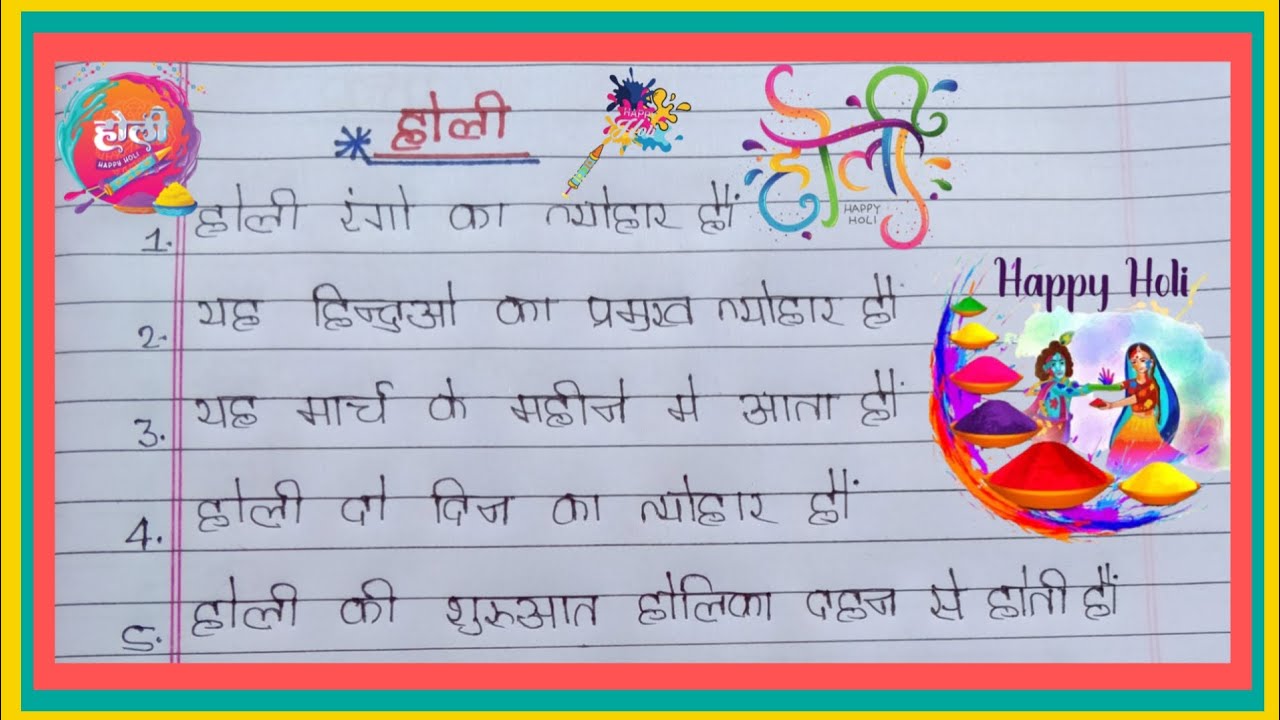 होली
HAPPY HOLI
होली
HAPPY
Holi
होली
HAPPY
HOLI
1. होली रंगो का त्योहार हौं
2. यह हिन्दुओ का प्रमुख त्योहार हौं
Happy Holi
3. यह मार्च के महीने मे आता हौं
4. होली दो दिन का त्योहार हौं
5. होली की शुरुआत होलिका दहन से होती हौं